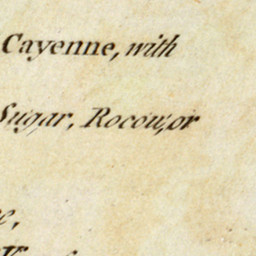 Cayenne, with
Sugar, Rocou, or